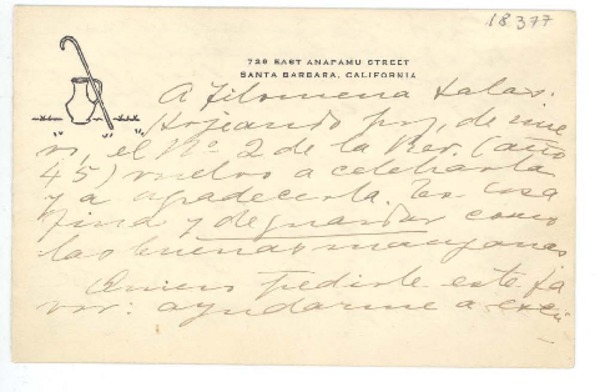 18377
729 EAST ANAPAMU STREET
SANTA BARBARA, CALIFORNIA
A Filomena Salas.
Hojeando hoy, de nue
vo, el Nº 2 de la Rev. (año
45) vuelvo a celebrarla
y a agradecerla. Es cosa
fina y de guardar como
las buenas manzanas
Quiero pedirle este fa
vor: ayudarme a